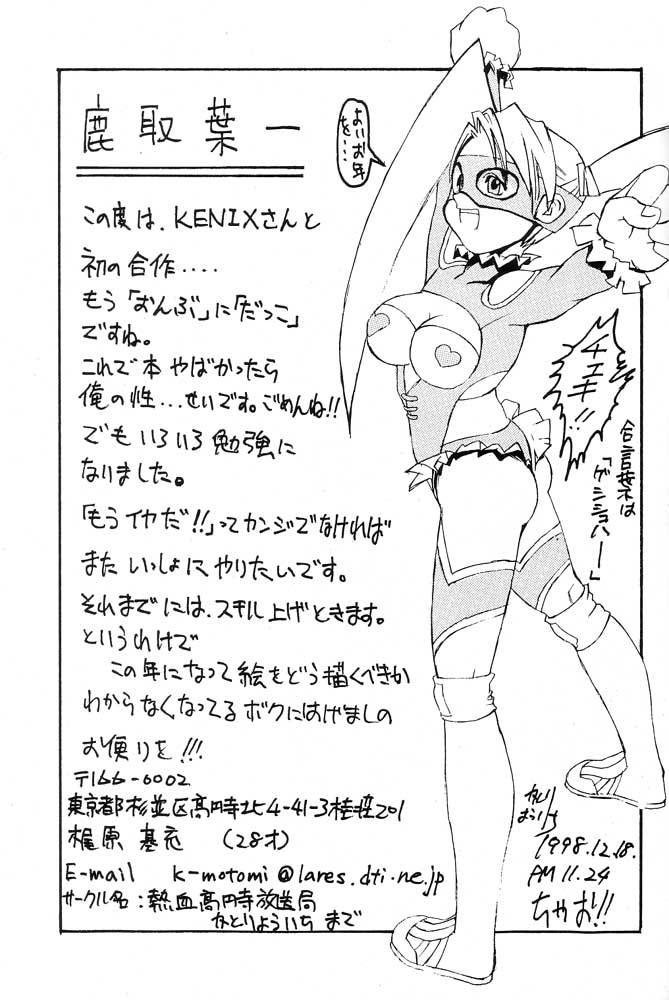 鹿取葉一
この度は、KENIXさんと
初の合作‥‥
もう「おんぶ」に「だっこ」
ですね。
これで本やばかったら
俺の性…せいです。ごめんね!!
でもいろいろ勉強に
なりました。
「もうイヤだ!!」ってカンジでなければ
またいっしょにやりたいです。
それまでには、スキル上げときます。
というわけで
この年になって絵をどう描くべきか
わからなくなってるボクにはげましの
お便りを!!!
〒166-0002
東京都杉並区高円寺北4-41-3桂荘201
梶原基充 (28才)
E-mail k-motomi@lares.dti.ne.jp
サークル名:熱血高円寺放送局
かとりよういち まで
よいお年
を…
チェキ!!
合言葉は
「ゲシショハー」
1998.12.18.
PM 11.24
ちゃお!!!